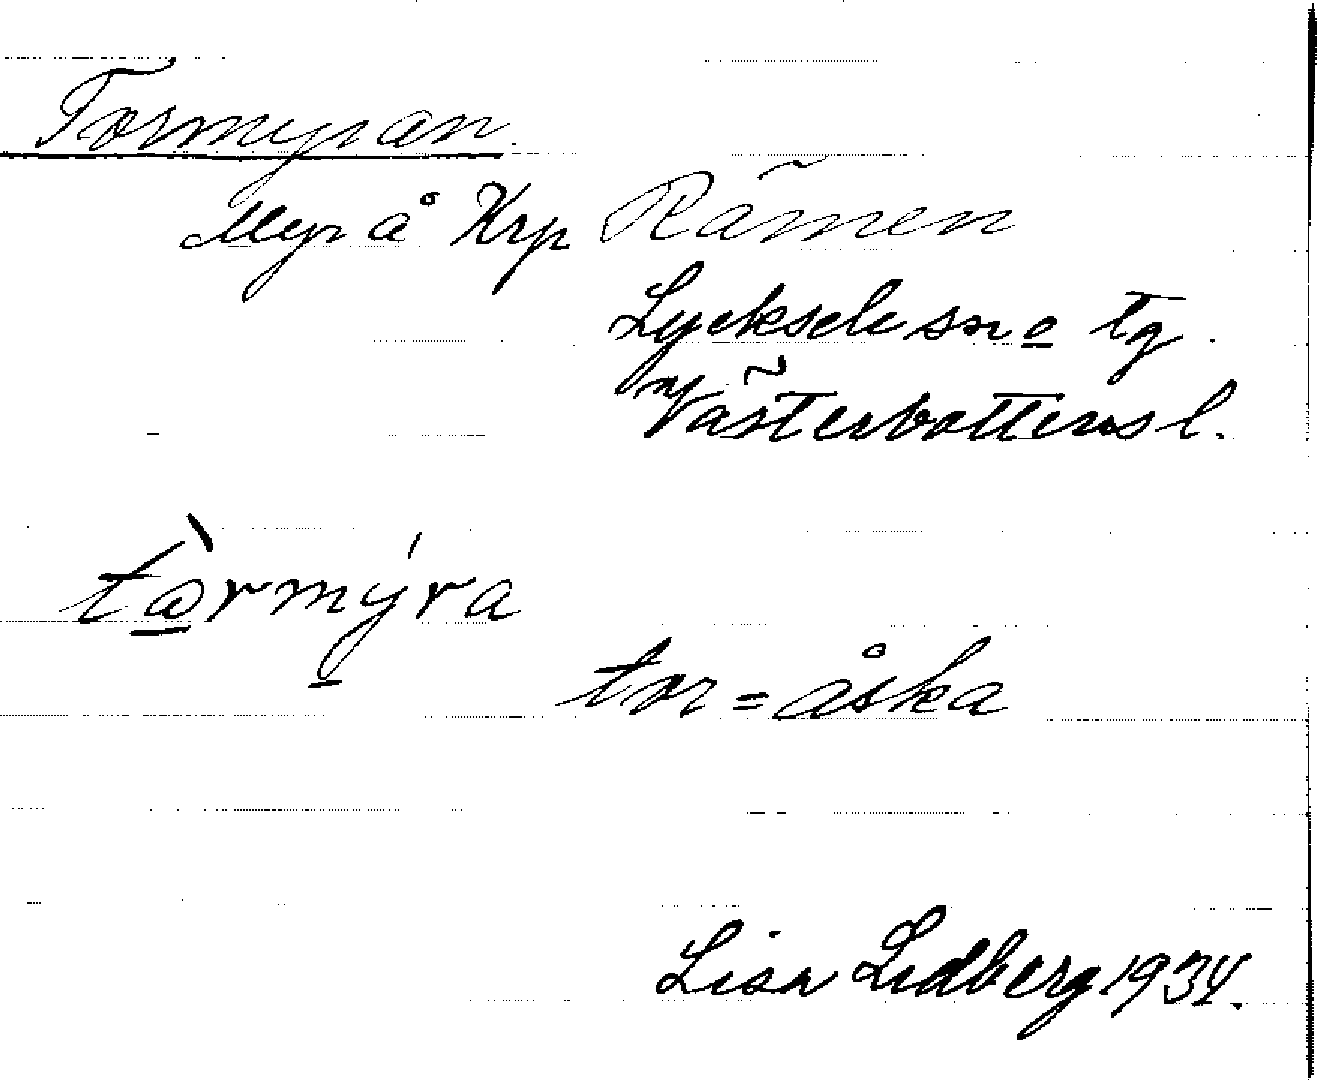 Tormyran.
Myr å Krp Rämen
Lycksele sn o tg.
Västerbottens l.
tàrmýra
tor = åska
Lisa Lidberg 1934.